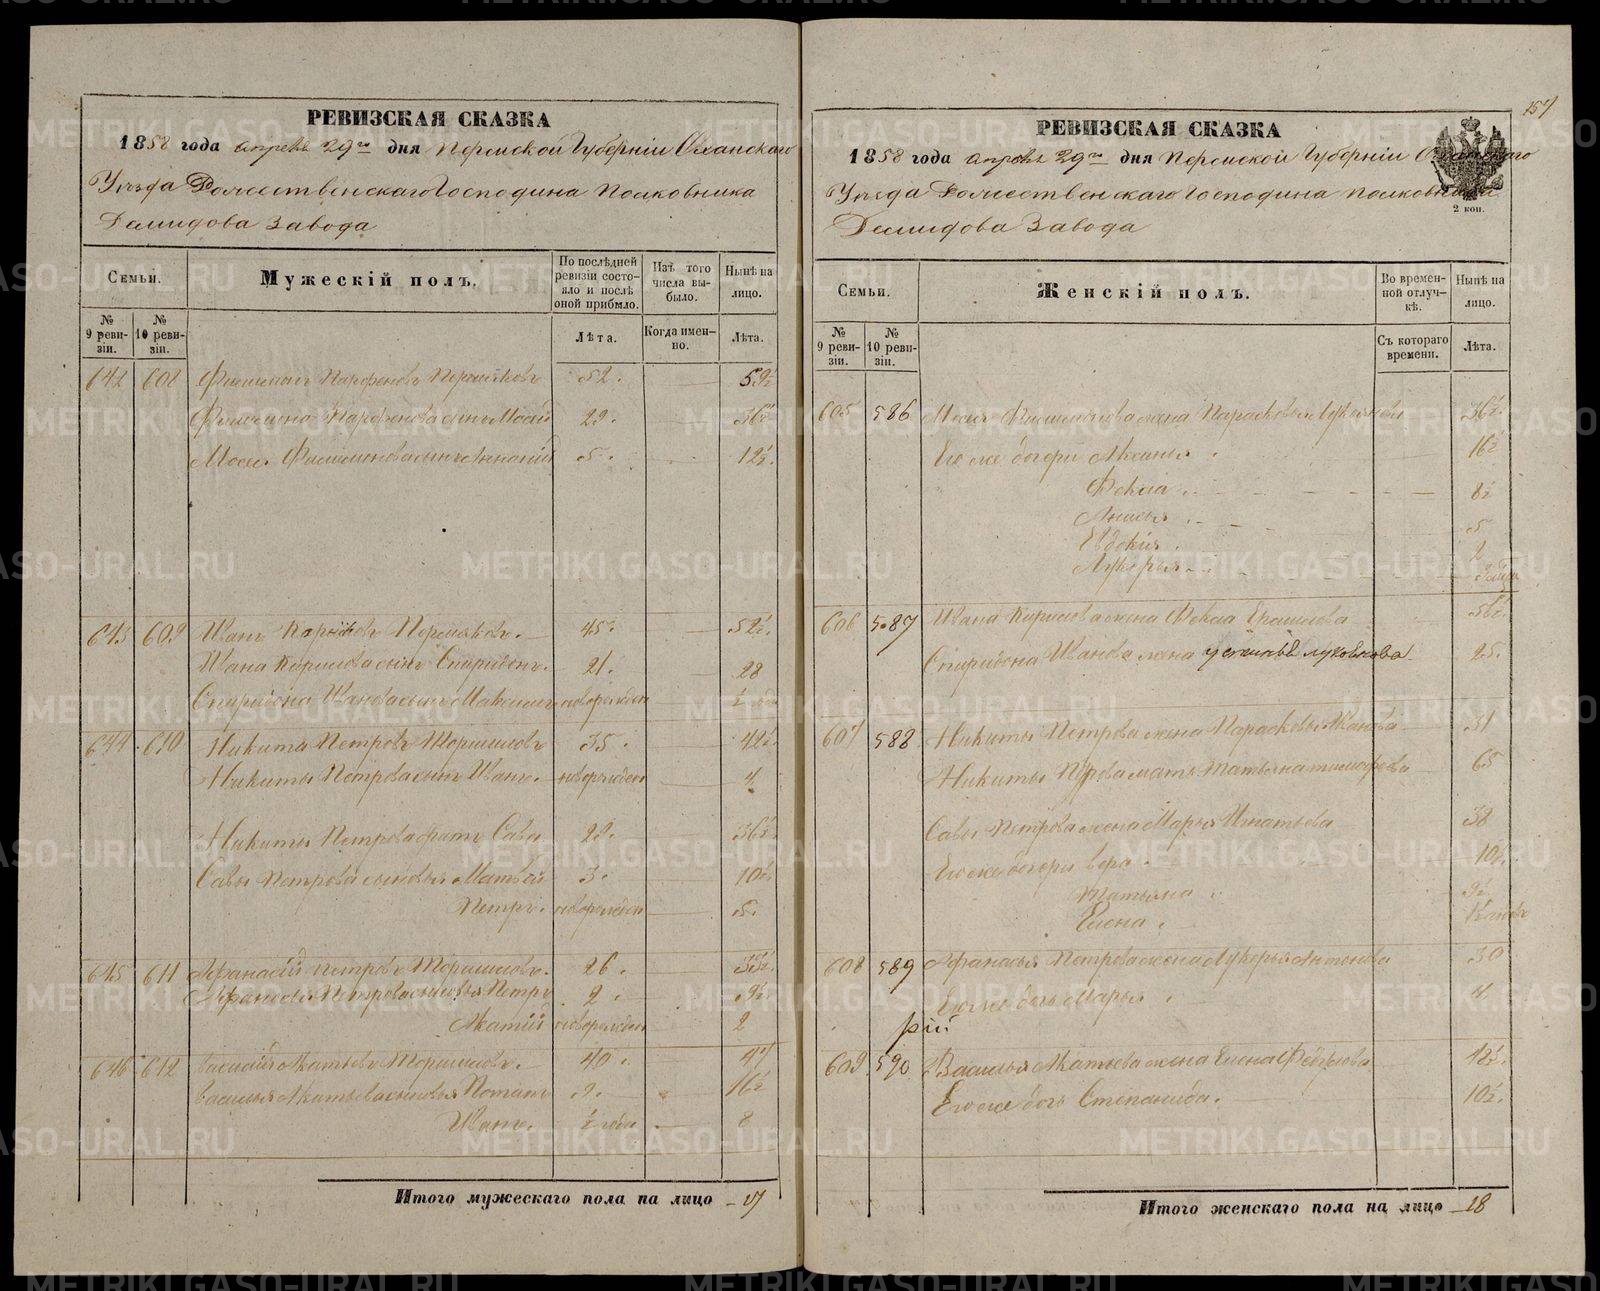 РЕВИЗСКАЯ СКАЗКА
1858 года апреля 29го дня Пермской Губернии Оханскаго
Уезда Рожественскаго Господина Полковника
Демидова Завода
Семьи.
Мужескій полъ.
По послѣдней ревизіи состояло и послѣ оной прибыло.
Изъ того числа выбыло.
Нынѣ на лицо.
№ 9 ревизіи.
№ 10 ревизіи.
Лѣта.
Когда именно.
Лѣта.
642 608 Филимонъ Парфеновъ 52. 59½
Филимона Парфенова сынъ Мосей 29. 36½
Мосея Филимонова сынъ 5. 12½
643 609 Иванъ 45. 52½
Ивана Кирилова сынъ Спиридонъ. 21. 28
Спиридона Иванова сынъ Максимъ новорожден ½
644 610 Никита Петровъ 35. 42½
Никиты Петрова сынъ Иванъ. новорожден 4
Никиты Петрова братъ Сава 29. 36½
Савы Петрова сыновья Матвей 3. 10½
Петръ. новорожден 5.
645 611 Афанасій Петровъ 26. 33½
Афанасья Петрова сыновья Петръ 2. 9½
новорожден 2
646 612 Василій Акатьевъ 40. 47
Василья Акатьева сыновья Потапъ 9. 16½
Иванъ. ½ года 8
Итого мужескаго пола на лицо 17
157
РЕВИЗСКАЯ СКАЗКА
1858 года апреля 29го дня Пермской Губернии Оханскаго
Уезда Рожественскаго Господина Полковника
2 коп.
Демидова Завода
Семьи.
Женскій полъ.
Во временной отлучкѣ.
Нынѣ на лицо.
№ 9 ревизіи.
№ 10 ревизіи.
Съ котораго времени.
Лѣта.
605 586 Мосея Филимонова жена Парасковья 36½
Его же дочери 16½
Фекла 8½
Анисья 5
Евдокия 2
Лукерья
606 587 Ивана Кирилова жена Фекла 56½
Спиридона Иванова жена 25.
607 588 Никиты Петрова жена Парасковья Иванова 31
Никиты Петрова мать Татьяна Тимофеева 65
Савы Петрова жена Марья Игнатьева 38
Его же дочери Вера 10½
Татьяна
Елена.
608 589 Афанасья Петрова жена Лукерья Антонова 30
Его же дочь Марья 4
609 590 Василья Акатьева жена Елена 48½
Его же дочь Степанида. 10½
Итого женскаго пола на лицо 18